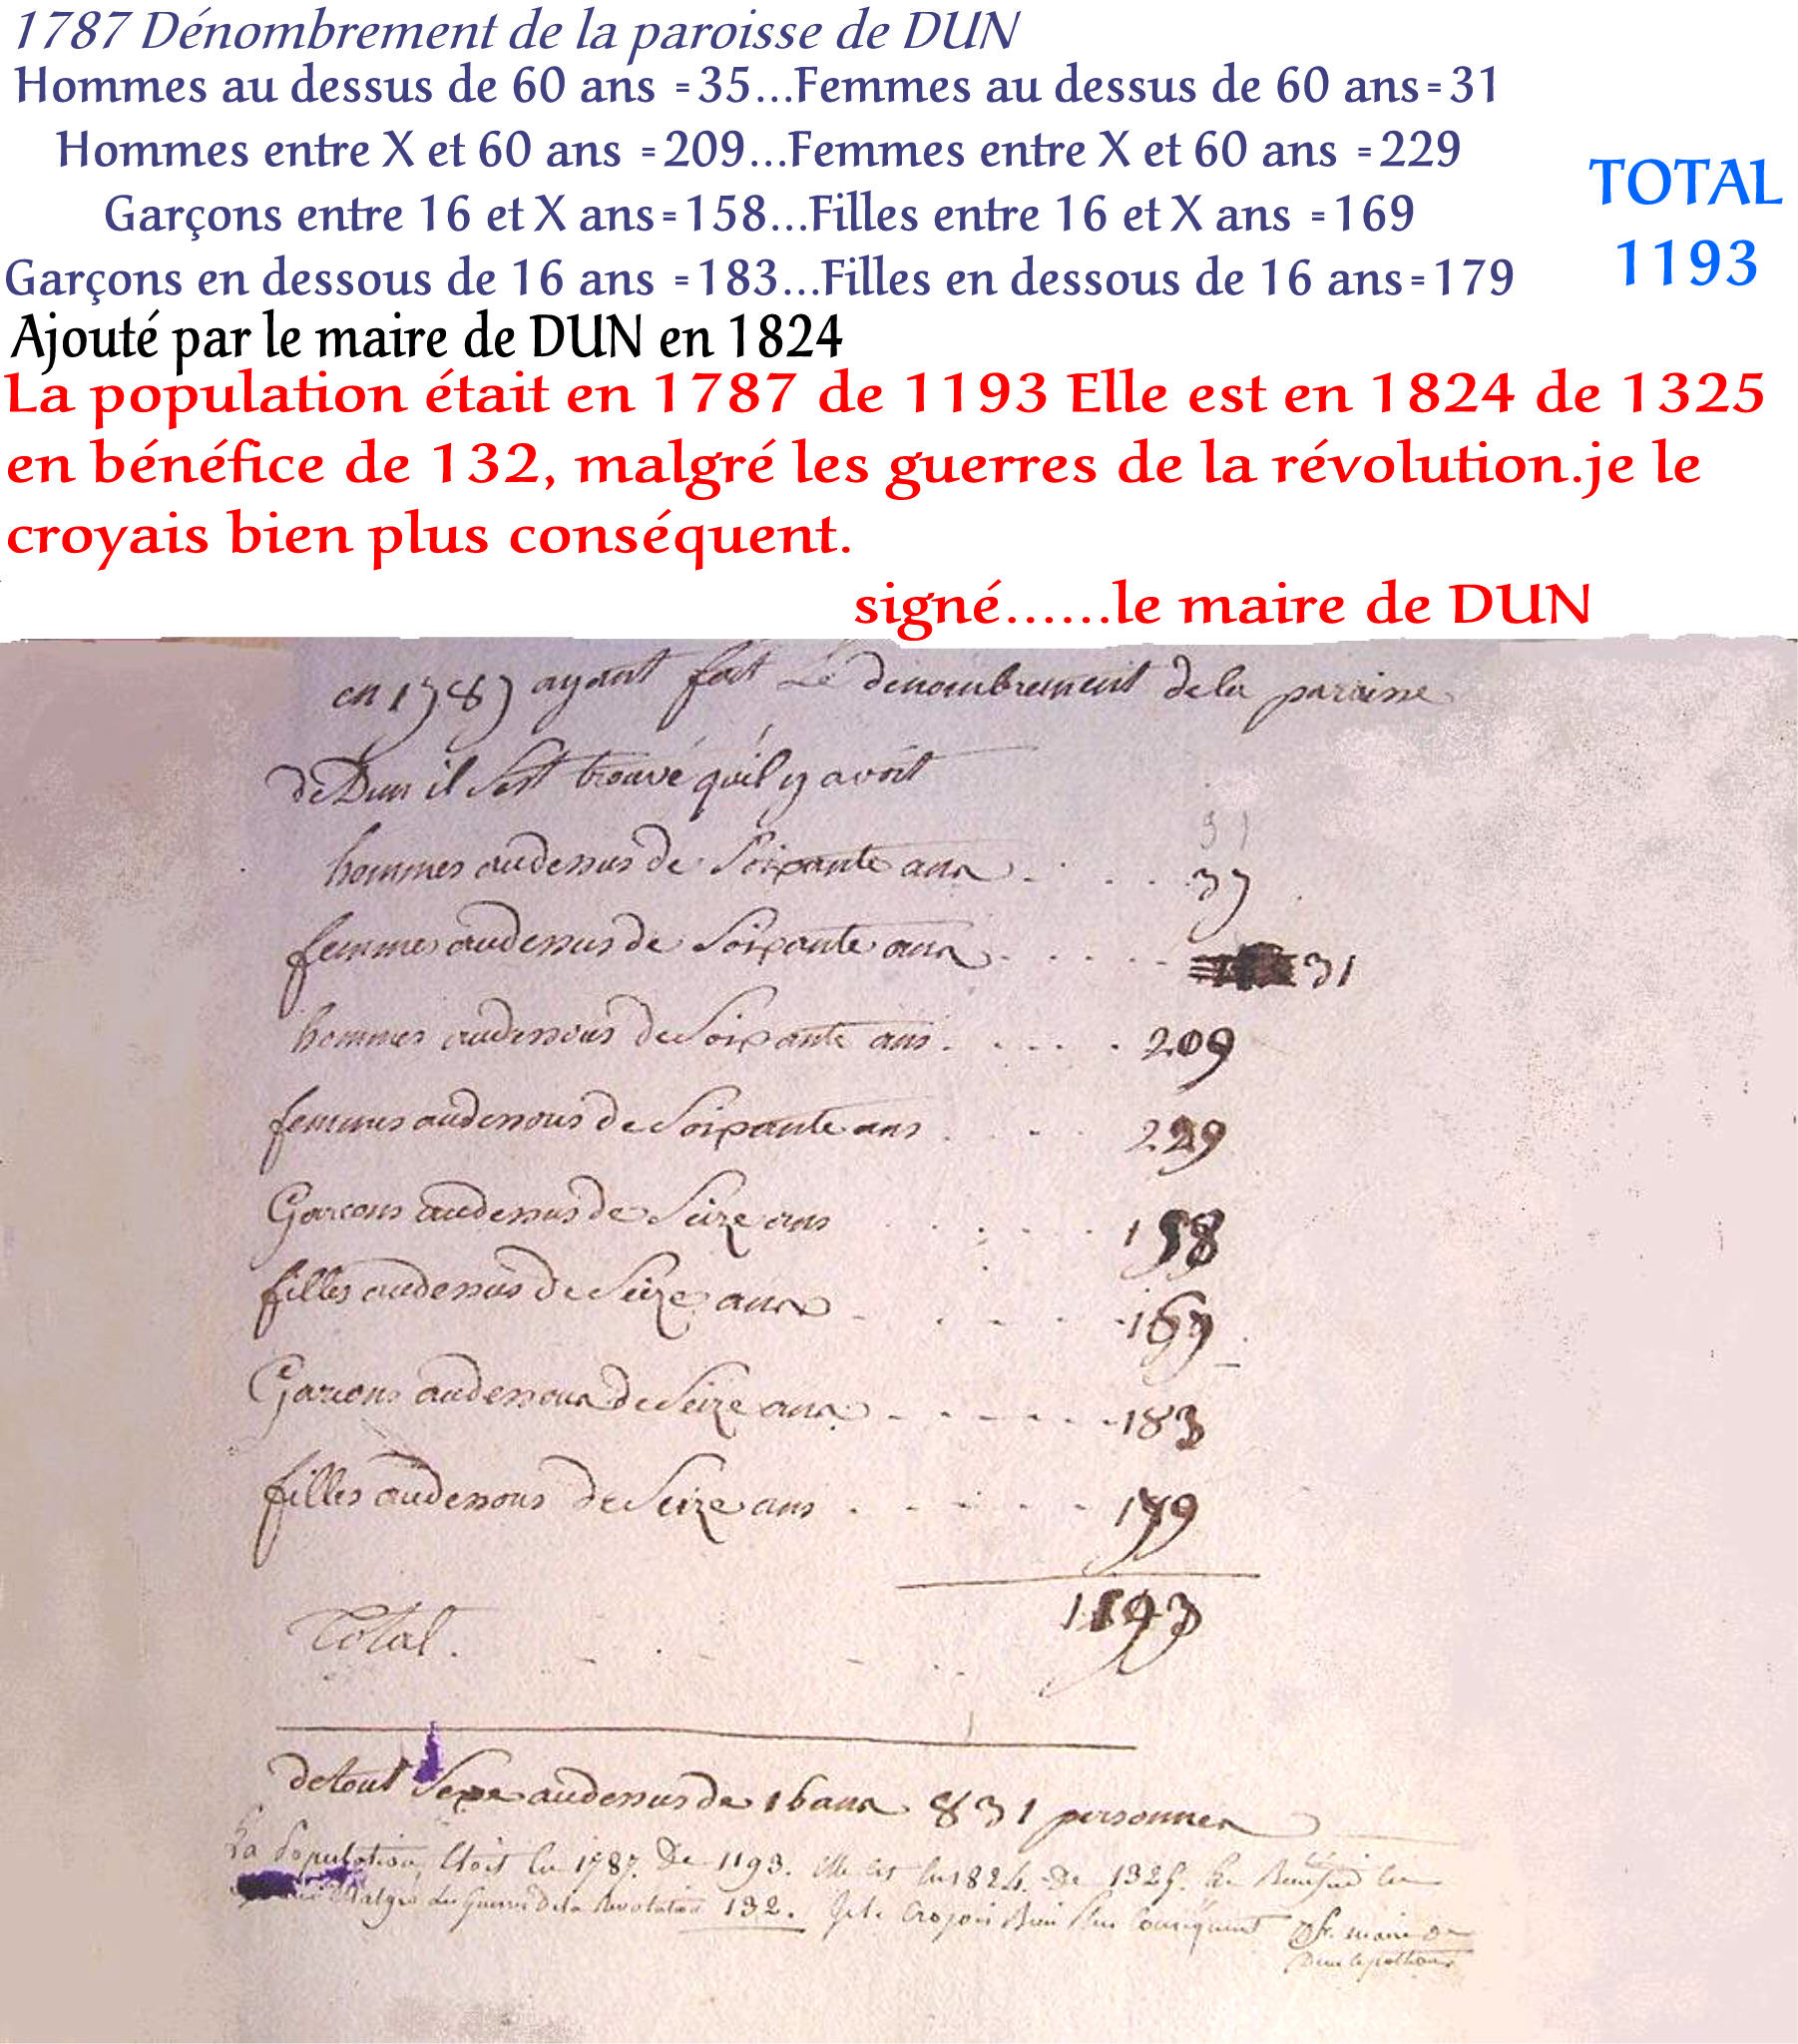 1787 Dénombrement de la paroisse de DUN
Hommes au dessus de 60 ans =35...Femmes au dessus de 60 ans=31
Hommes entre X et 60 ans =209...Femmes entre X et 60 ans =229
Garçons entre 16 et X ans=158...Filles entre 16 et X ans =169
Garçons en dessous de 16 ans =183...Filles en dessous de 16 ans=179
TOTAL
1193
Ajouté par le maire de DUN en 1824
La population était en 1787 de 1193 Elle est en 1824 de 1325
en bénéfice de 132, malgré les guerres de la révolution.je le
croyais bien plus conséquent.
signé......le maire de DUN
en 1787 ayant fait Le denombrement dela paroisse
de Dun il sest trouvé quil y avoit
hommes audessus de Soixante ans . . . . 37
femmes audessus de Soixante ans . . . . . 31
hommes audessous de Soixante ans . . . . . 209
femmes audessous de Soixante ans . . . . 229
Garcons audessus de Seize ans . . . . . 158
filles audessus de Seize ans . . . . . 167
Garcons audessous de Seize ans - - - - - - 183
filles audessous de Seize ans . - - - - 179
Total . 1193
detout Sexe audessus de 16 ans 831 personnes
La Population Etoit En 1787. De 1193. Elle est En 1824. De 1325. En
Malgré les Guerres De la Revolution 132. Je le Croyois Bien Plus Consequent maire De
Dun